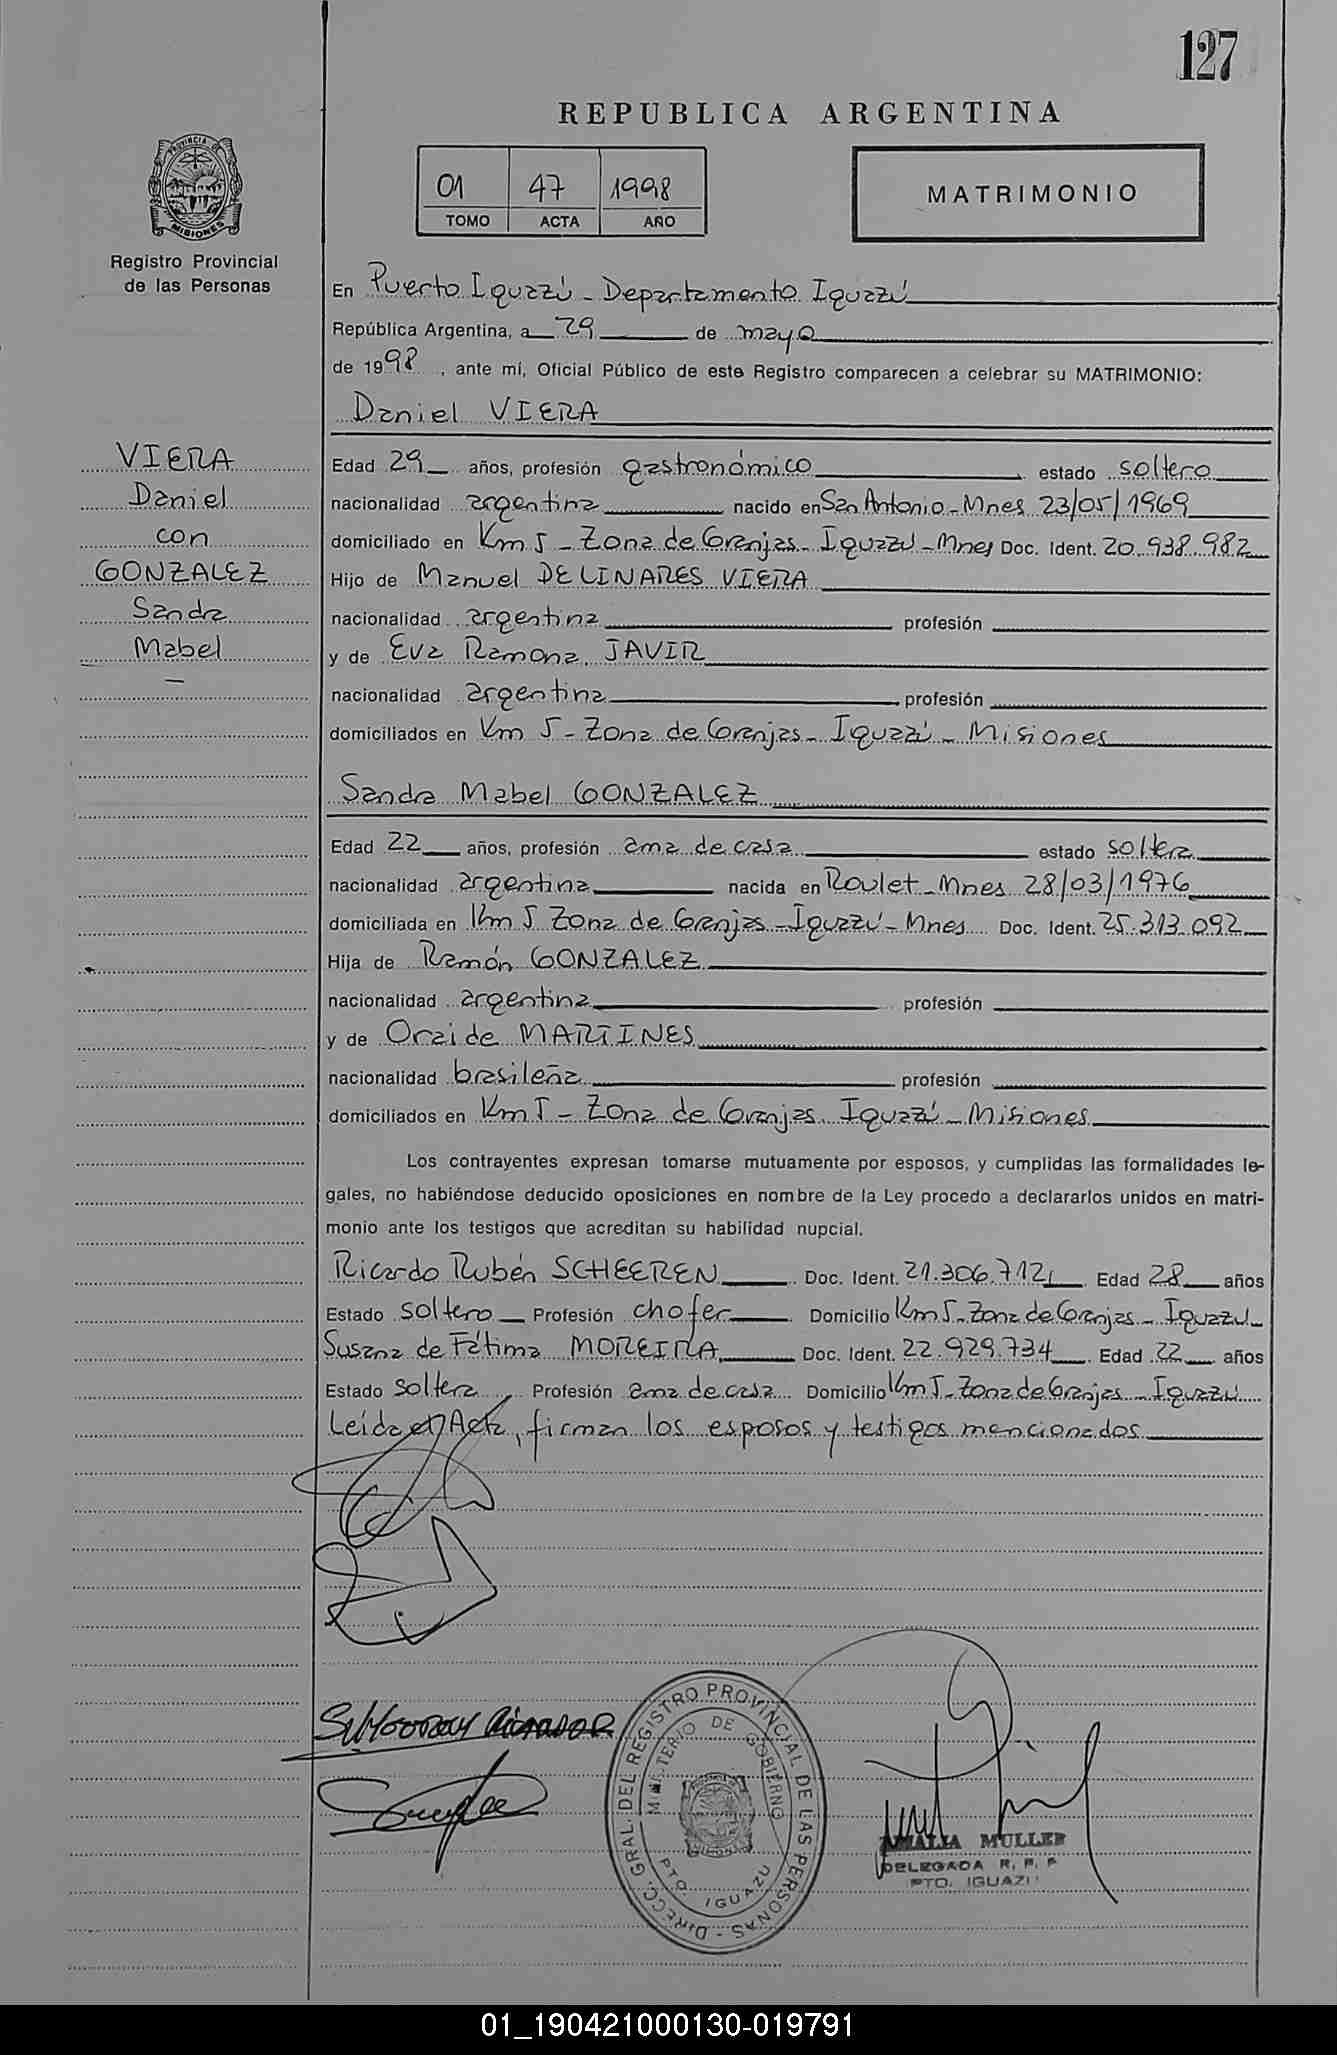 127
REPUBLICA ARGENTINA
01 47 1998
TOMO ACTA AÑO
MATRIMONIO
PROVINCIA DE
MISIONES
Registro Provincial
de las Personas
En Puerto Iguazú - Departamento Iguazú
República Argentina, a 29 de mayo
de 1998, ante mí, Oficial Público de este Registro comparecen a celebrar su MATRIMONIO:
Daniel VIERA
VIERA
Daniel
con
GONZALEZ
Sandra
Mabel
Edad 29 años, profesión gastronómico estado soltero
nacionalidad argentina nacido en San Antonio - Mnes 23/05/1969
domiciliado en Km 5 - Zona de Granjas - Iguazú - Mnes Doc. Ident. 20.938.982
Hijo de Manuel DE LINARES VIERA
nacionalidad argentina profesión
y de Eva Ramona JAVIR
nacionalidad argentina profesión
domiciliados en Km 5 - Zona de Granjas - Iguazú - Misiones
Sandra Mabel GONZALEZ
Edad 22 años, profesión ama de casa estado soltera
nacionalidad argentina nacida en Roulet - Mnes 28/03/1976
domiciliada en Km 5 Zona de Granjas - Iguazú - Mnes Doc. Ident. 25.313.092
Hija de Ramón GONZALEZ
nacionalidad argentina profesión
y de Oraide MARTINES
nacionalidad brasileña profesión
domiciliados en Km 5 - Zona de Granjas. Iguazú - Misiones
Los contrayentes expresan tomarse mutuamente por esposos, y cumplidas las formalidades le-
gales, no habiéndose deducido oposiciones en nombre de la Ley procedo a declararlos unidos en matri-
monio ante los testigos que acreditan su habilidad nupcial.
Ricardo Rubén SCHEEREN Doc. Ident. 21.306.712 Edad 28 años
Estado soltero Profesión chofer Domicilio Km 5 - Zona de Granjas - Iguazú
Susana de Fátima MOREIRA Doc. Ident. 22.929.734 Edad 22 años
Estado soltera Profesión ama de casa Domicilio Km 5 - Zona de Granjas - Iguazú
Leída el Acta, firman los esposos y testigos mencionados
DIRECC. GRAL. DEL REGISTRO PROVINCIAL DE LAS PERSONAS -
MINISTERIO DE GOBIERNO
PTO. IGUAZU
AMALIA MULLER
DELEGADA R. P. P
PTO. IGUAZU
01_190421000130-019791